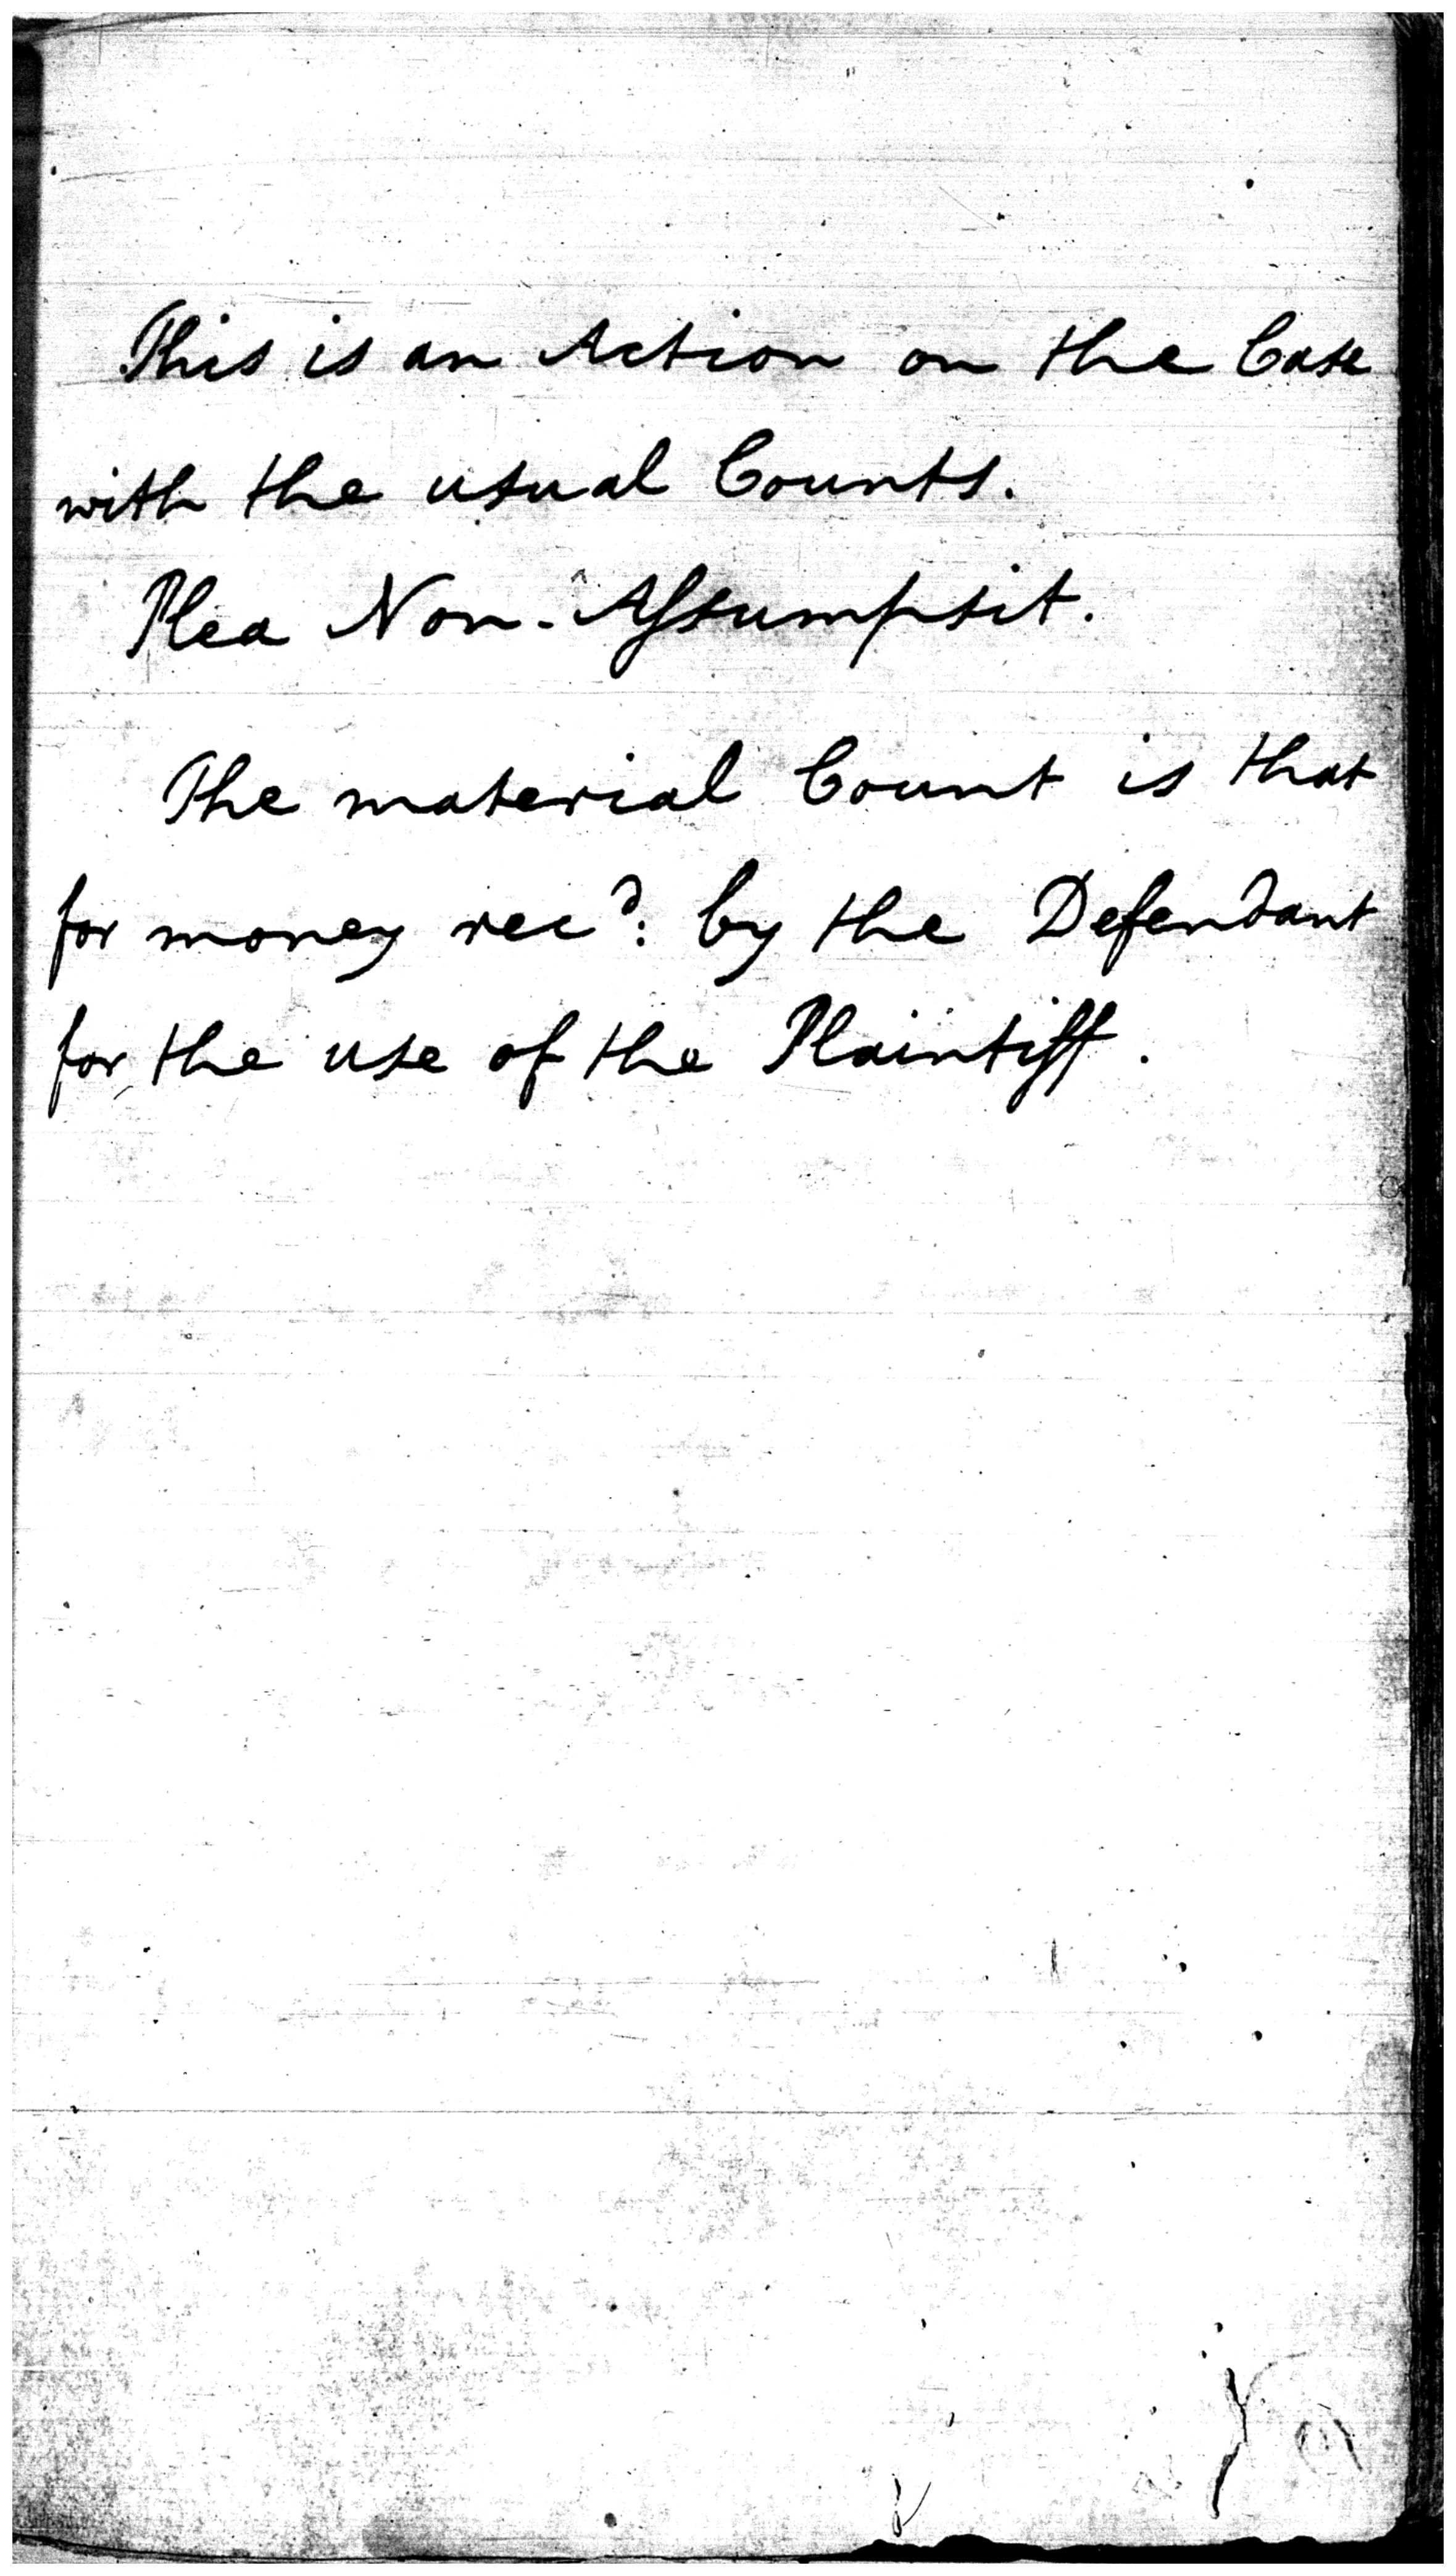 This is an Action on the Case
with the usual Counts.
Plea Non-Assumpsit.
The material Count is that
for money recd: by the Defendant
for the use of the Plaintiff.